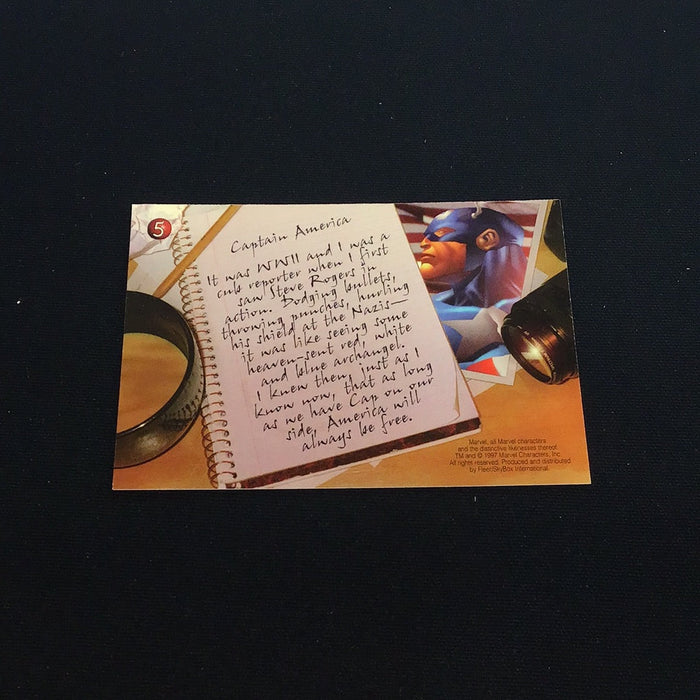 5
Captain America
It was WWII and I was a
cub reporter when I first
saw Steve Rogers in
action. Dodging bullets,
throwing punches, hurling
his shield at the Nazis—
it was like seeing some
heaven-sent red, white
and blue archangel.
I knew then, just as I
know now, that as long
as we have Cap on our
side, America will
always be free.
Marvel, all Marvel characters
and the distinctive likenesses thereof:
TM and © 1997 Marvel Characters, Inc.
All rights reserved. Produced and distributed
by Fleer/SkyBox International.